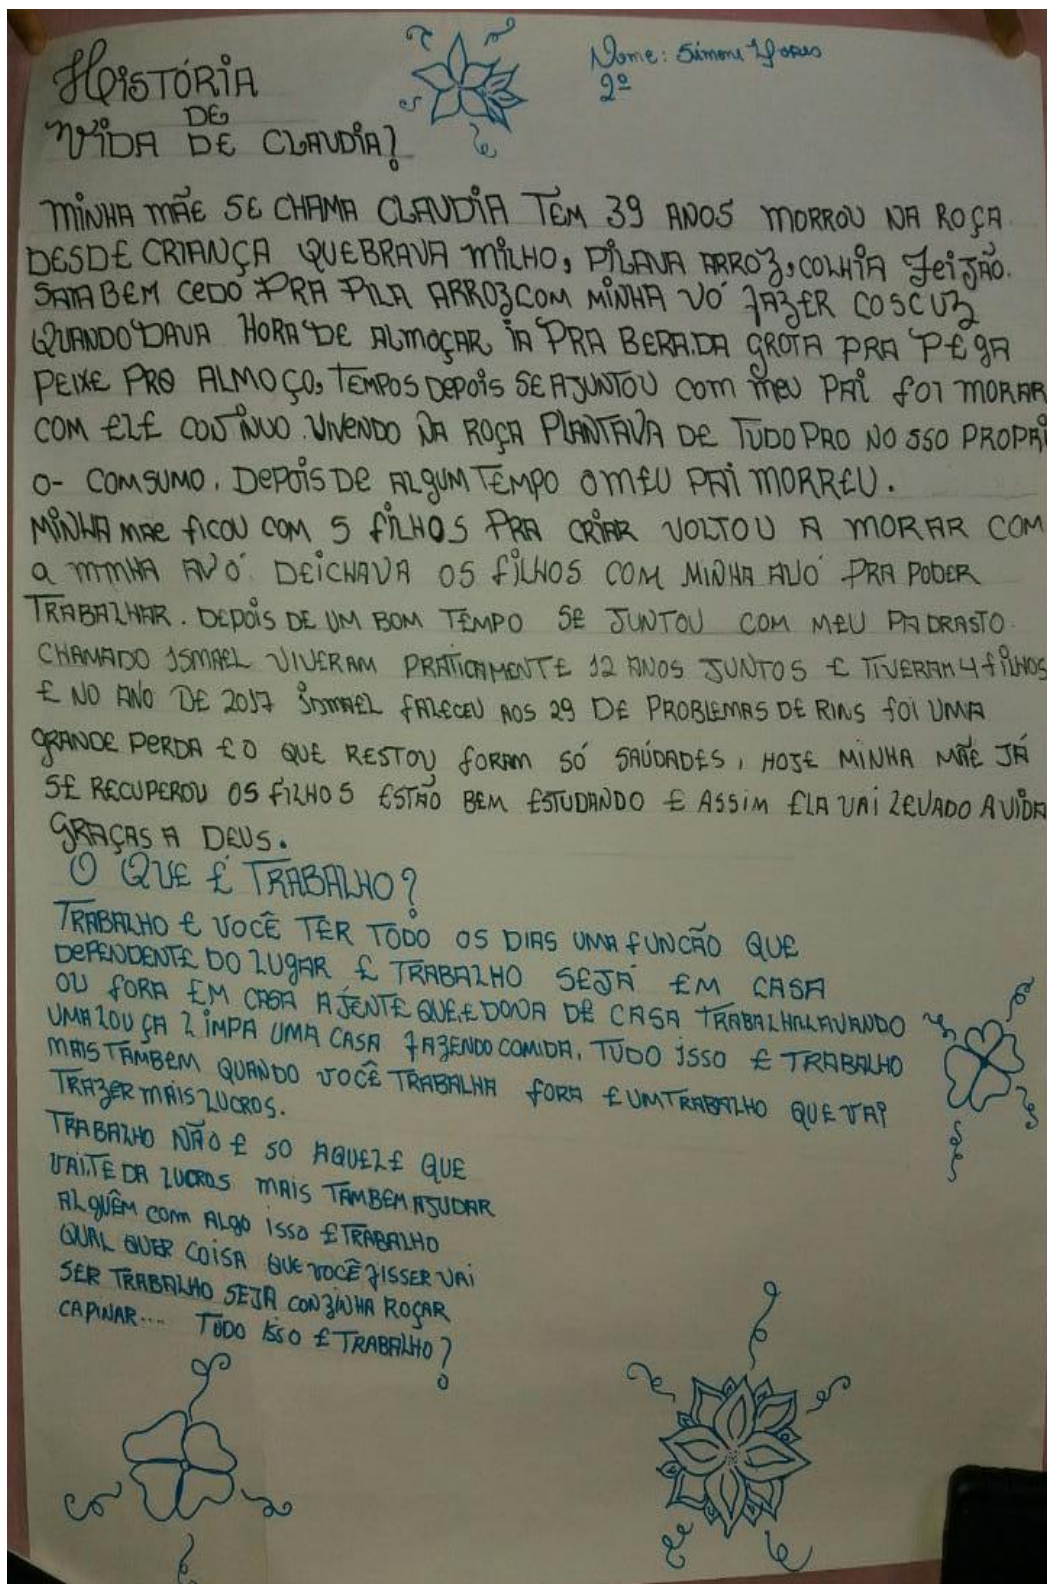 HISTÓRIA
DE
VIDA DE CLAUDIA?
Nome: Simone
2º
MINHA MÃE SE CHAMA CLAUDIA TEM 39 ANOS MORROU NA ROÇA.
DESDE CRIANÇA QUEBRAVA MILHO, PILAVA ARROZ, COLHIA FEIJÃO.
SAIA BEM CEDO PRA PILA ARROZ COM MINHA VÓ FAZER COSCUZ
QUANDO DAVA HORA DE ALMOÇAR IA PRA BERADA GROTA PRA PEGA
PEIXE PRO ALMOÇO, TEMPOS DEPOIS SE AJUNTOU COM MEU PAI FOI MORAR
COM ELE CONTINUO. VIVENDO NA ROÇA PLANTAVA DE TUDO PRO NOSSO PROPRI
O- COMSUMO. DEPOIS DE ALGUM TEMPO O MEU PAI MORREU.
MINHA MAE FICOU COM 5 FILHOS PRA CRIAR VOLTOU A MORAR COM
A MINHA AVÓ. DEICHAVA OS FILHOS COM MINHA AVÓ PRA PODER
TRABALHAR. DEPOIS DE UM BOM TEMPO SE JUNTOU COM MEU PADRASTO.
CHAMADO ISMAEL VIVERAM PRATICAMENTE 12 ANOS JUNTOS E TIVERAM 4 FILHOS
E NO ANO DE 2017 ISMAEL FALECEU AOS 29 DE PROBLEMAS DE RINS FOI UMA
GRANDE PERDA E O QUE RESTOU FORAM SÓ SAÚDADES, HOJE MINHA MÃE JÁ
SE RECUPEROU OS FILHOS ESTÃO BEM ESTUDANDO E ASSIM ELA VAI LEVADO A VIDA
GRAÇAS A DEUS.
O QUE É TRABALHO?
TRABALHO E VOCÊ TER TODO OS DIAS UMA FUNCÃO QUE
DEPENDENTE DO LUGAR E TRABALHO SEJA EM CASA
OU FORA EM CASA A JENTE QUE E DONA DE CASA TRABALHA LAVANDO
UMA LOUÇA LIMPA UMA CASA FAZENDO COMIDA. TUDO ISSO E TRABALHO
MAIS TAMBEM QUANDO VOCÊ TRABALHA FORA E UM TRABALHO QUE VAI
TRAZER MAIS LUCROS.
TRABALHO NÃO E SO AQUELE QUE
VAI TE DA LUCROS MAIS TAMBEM AJUDAR
ALGUÊM COM ALGO ISSO E TRABALHO
QUAL QUER COISA QUE VOCÊ FISSER VAI
SER TRABALHO SEJA CONZINHA ROÇAR
CAPINAR.... TUDO ISSO E TRABALHO?